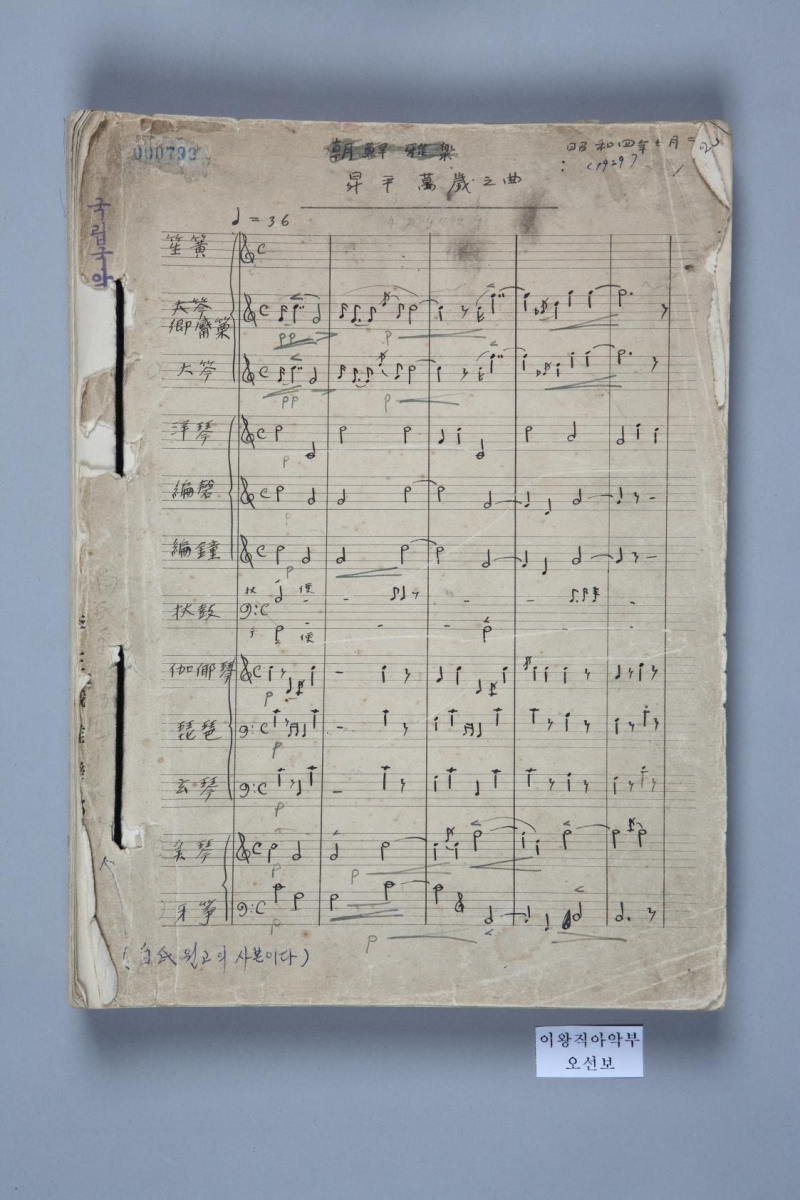 000793
朝鮮雅樂
昭和四年七月二
(1929)
昇平萬歲之曲
국립국악
♩ = 36
笙簧
大笒
鄕觱篥
大笒
洋琴
編磬
編鐘
杖鼓
伽倻琴
琵琶
玄琴
奚琴
牙箏
pp
pp
p
p
p
p
p
p
p
p
p
p
p
p
원고의 사본이다)
이왕직아악부
오선보